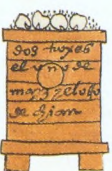 dos troxes
el vno de
mayz elotro
de chian